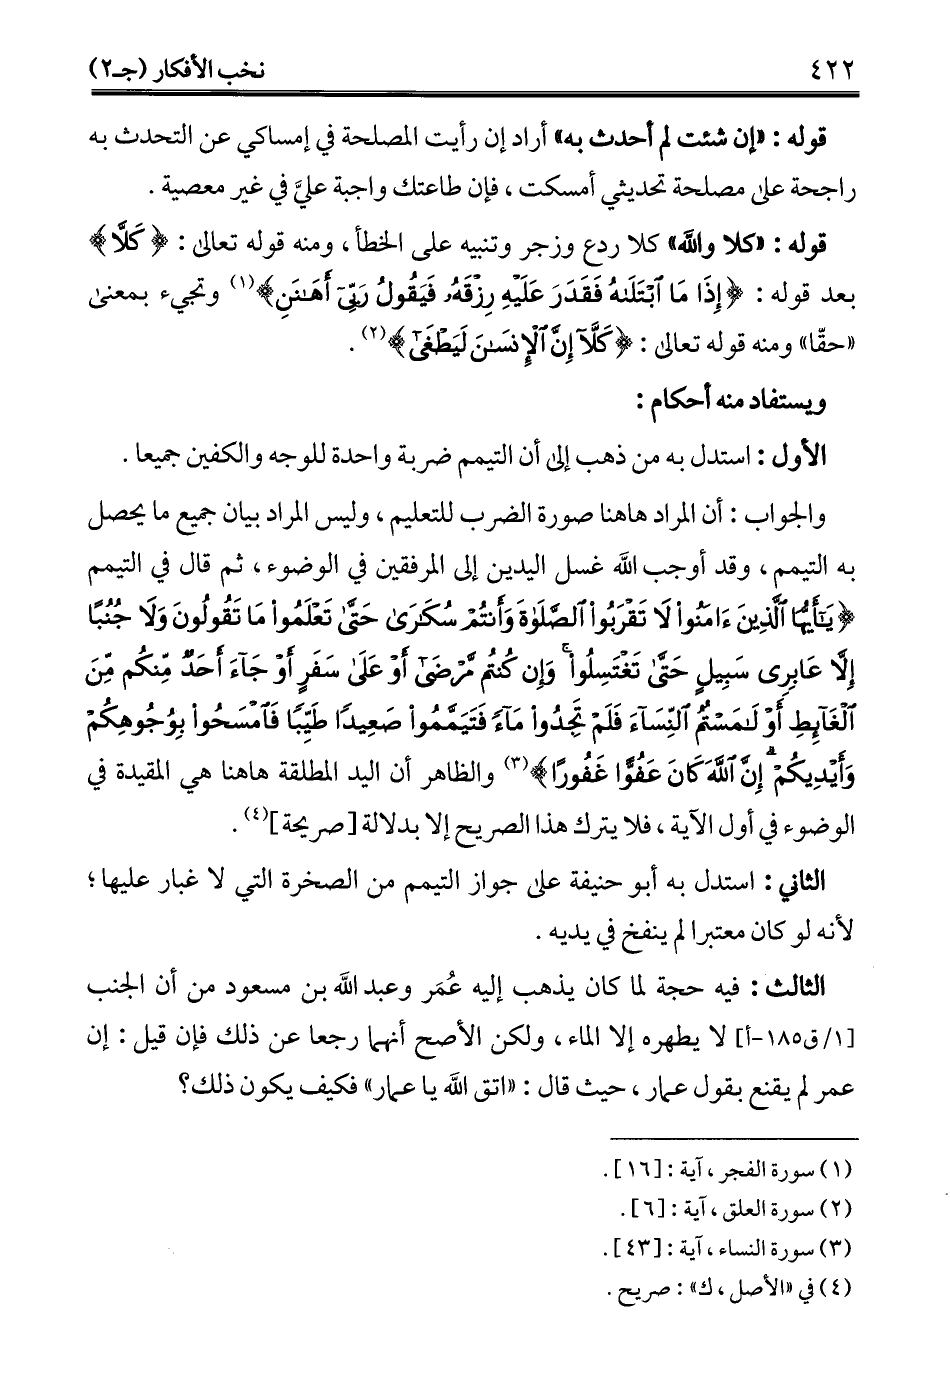 ٤٢٢
نخب الأفكار (جـ٢)
قوله : «إن شئت لم أحدث به» أراد إن رأيت المصلحة في إمساكي عن التحدث به
راجحة على مصلحة تحديثي أمسكت ، فإن طاعتك واجبة عليَّ في غير معصية .
قوله : «كلا والله» كلا ردع وزجر وتنبيه على الخطأ ، ومنه قوله تعالى : ﴿ كَلَّا ﴾
بعد قوله : ﴿ إِذَا مَا ٱبْتَلَىٰهُ فَقَدَرَ عَلَيْهِ رِزْقَهُۥ فَيَقُولُ رَبِّىٓ أَهَٰنَنِ ﴾(١) وتجيء بمعنى
«حقّا» ومنه قوله تعالى : ﴿ كَلَّآ إِنَّ ٱلْإِنسَٰنَ لَيَطْغَىٰٓ ﴾(٢) .
ويستفاد منه أحكام :
الأول : استدل به من ذهب إلى أن التيمم ضربة واحدة للوجه والكفين جميعا .
والجواب : أن المراد هاهنا صورة الضرب للتعليم ، وليس المراد بيان جميع ما يحصل
به التيمم ، وقد أوجب الله غسل اليدين إلى المرفقين في الوضوء ، ثم قال في التيمم
﴿ يَٰٓأَيُّهَا ٱلَّذِينَ ءَامَنُوا۟ لَا تَقْرَبُوا۟ ٱلصَّلَوٰةَ وَأَنتُمْ سُكَٰرَىٰ حَتَّىٰ تَعْلَمُوا۟ مَا تَقُولُونَ وَلَا جُنُبًا
إِلَّا عَابِرِى سَبِيلٍ حَتَّىٰ تَغْتَسِلُوا۟ ۚ وَإِن كُنتُم مَّرْضَىٰٓ أَوْ عَلَىٰ سَفَرٍ أَوْ جَآءَ أَحَدٌ مِّنكُم مِّنَ
ٱلْغَآئِطِ أَوْ لَٰمَسْتُمُ ٱلنِّسَآءَ فَلَمْ تَجِدُوا۟ مَآءً فَتَيَمَّمُوا۟ صَعِيدًا طَيِّبًا فَٱمْسَحُوا۟ بِوُجُوهِكُمْ
وَأَيْدِيكُمْ ۗ إِنَّ ٱللَّهَ كَانَ عَفُوًّا غَفُورًا ﴾(٣) والظاهر أن اليد المطلقة هاهنا هي المقيدة في
الوضوء في أول الآية ، فلا يترك هذا الصريح إلا بدلالة [صريحة](٤) .
الثاني : استدل به أبو حنيفة على جواز التيمم من الصخرة التي لا غبار عليها ؛
لأنه لو كان معتبرا لم ينفخ في يديه .
الثالث : فيه حجة لما كان يذهب إليه عُمَر وعبد الله بن مسعود من أن الجنب
[١/ق١٨٥-أ] لا يطهره إلا الماء ، ولكن الأصح أنهما رجعا عن ذلك فإن قيل : إن
عمر لم يقنع بقول عمار ، حيث قال : «اتق الله يا عمار» فكيف يكون ذلك؟
(١) سورة الفجر ، آية : [١٦] .
(٢) سورة العلق ، آية : [٦] .
(٣) سورة النساء ، آية : [٤٣] .
(٤) في «الأصل ، ك» : صريح .